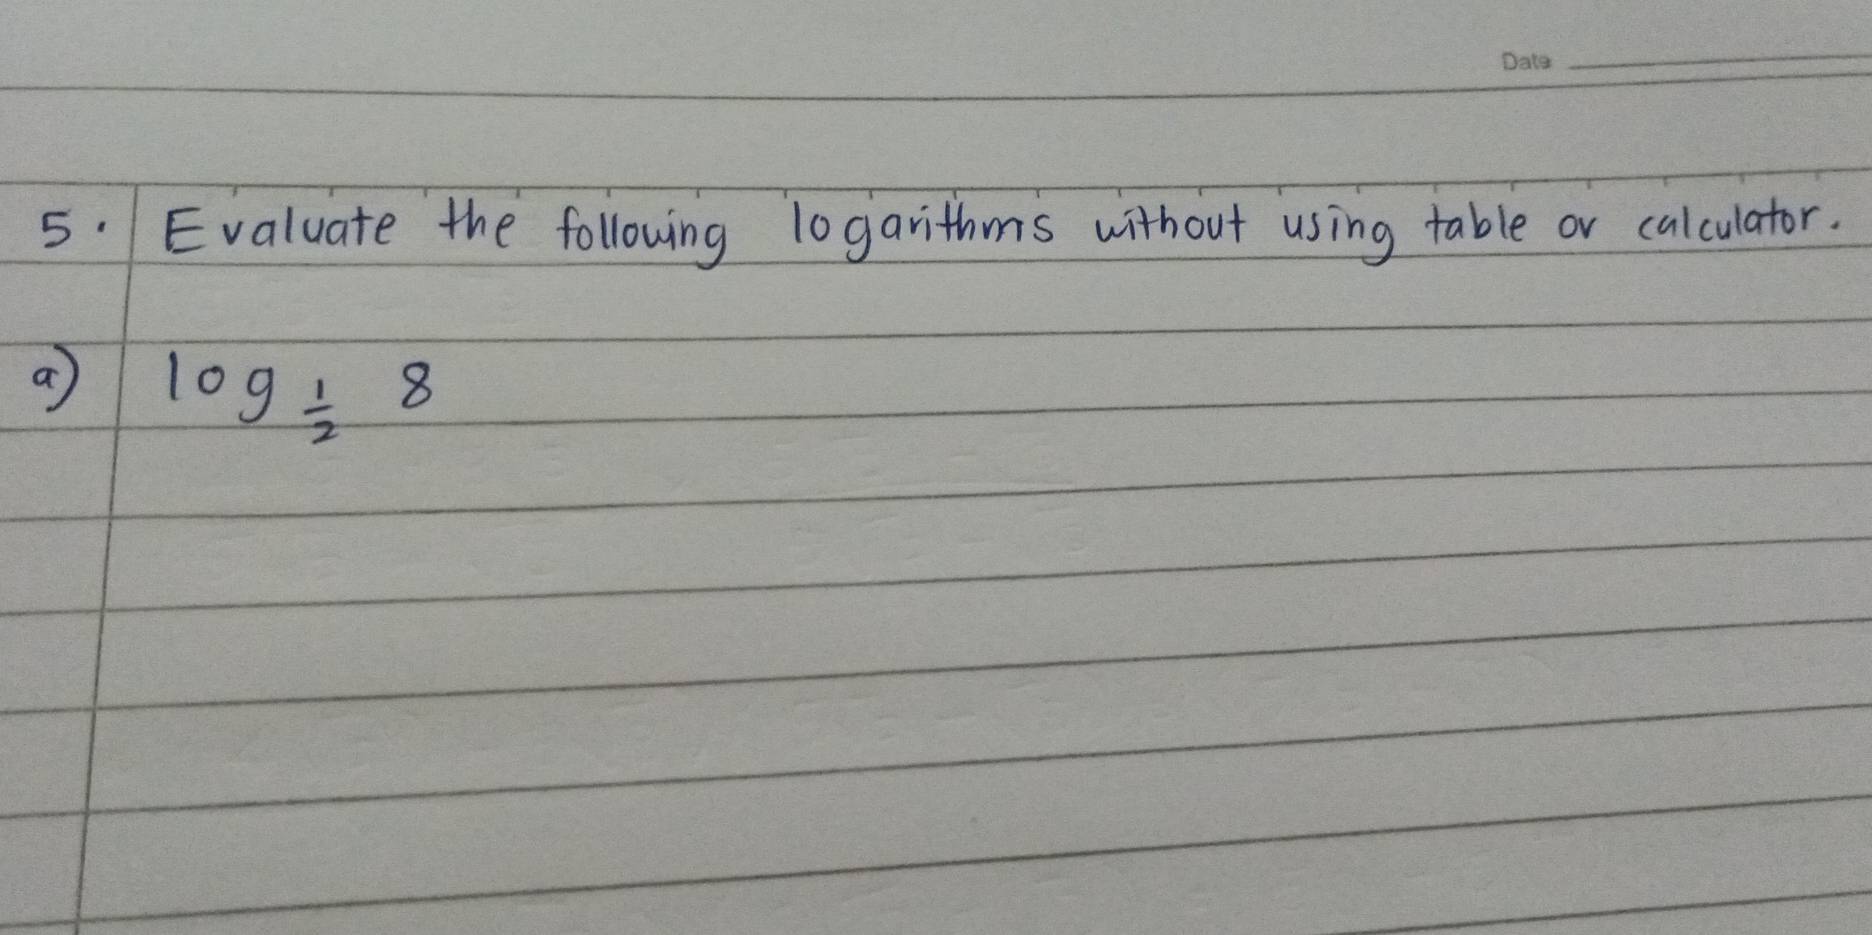 Date
5. Evaluate the following logarithms without using table or calculator.
a) log 1/2 8